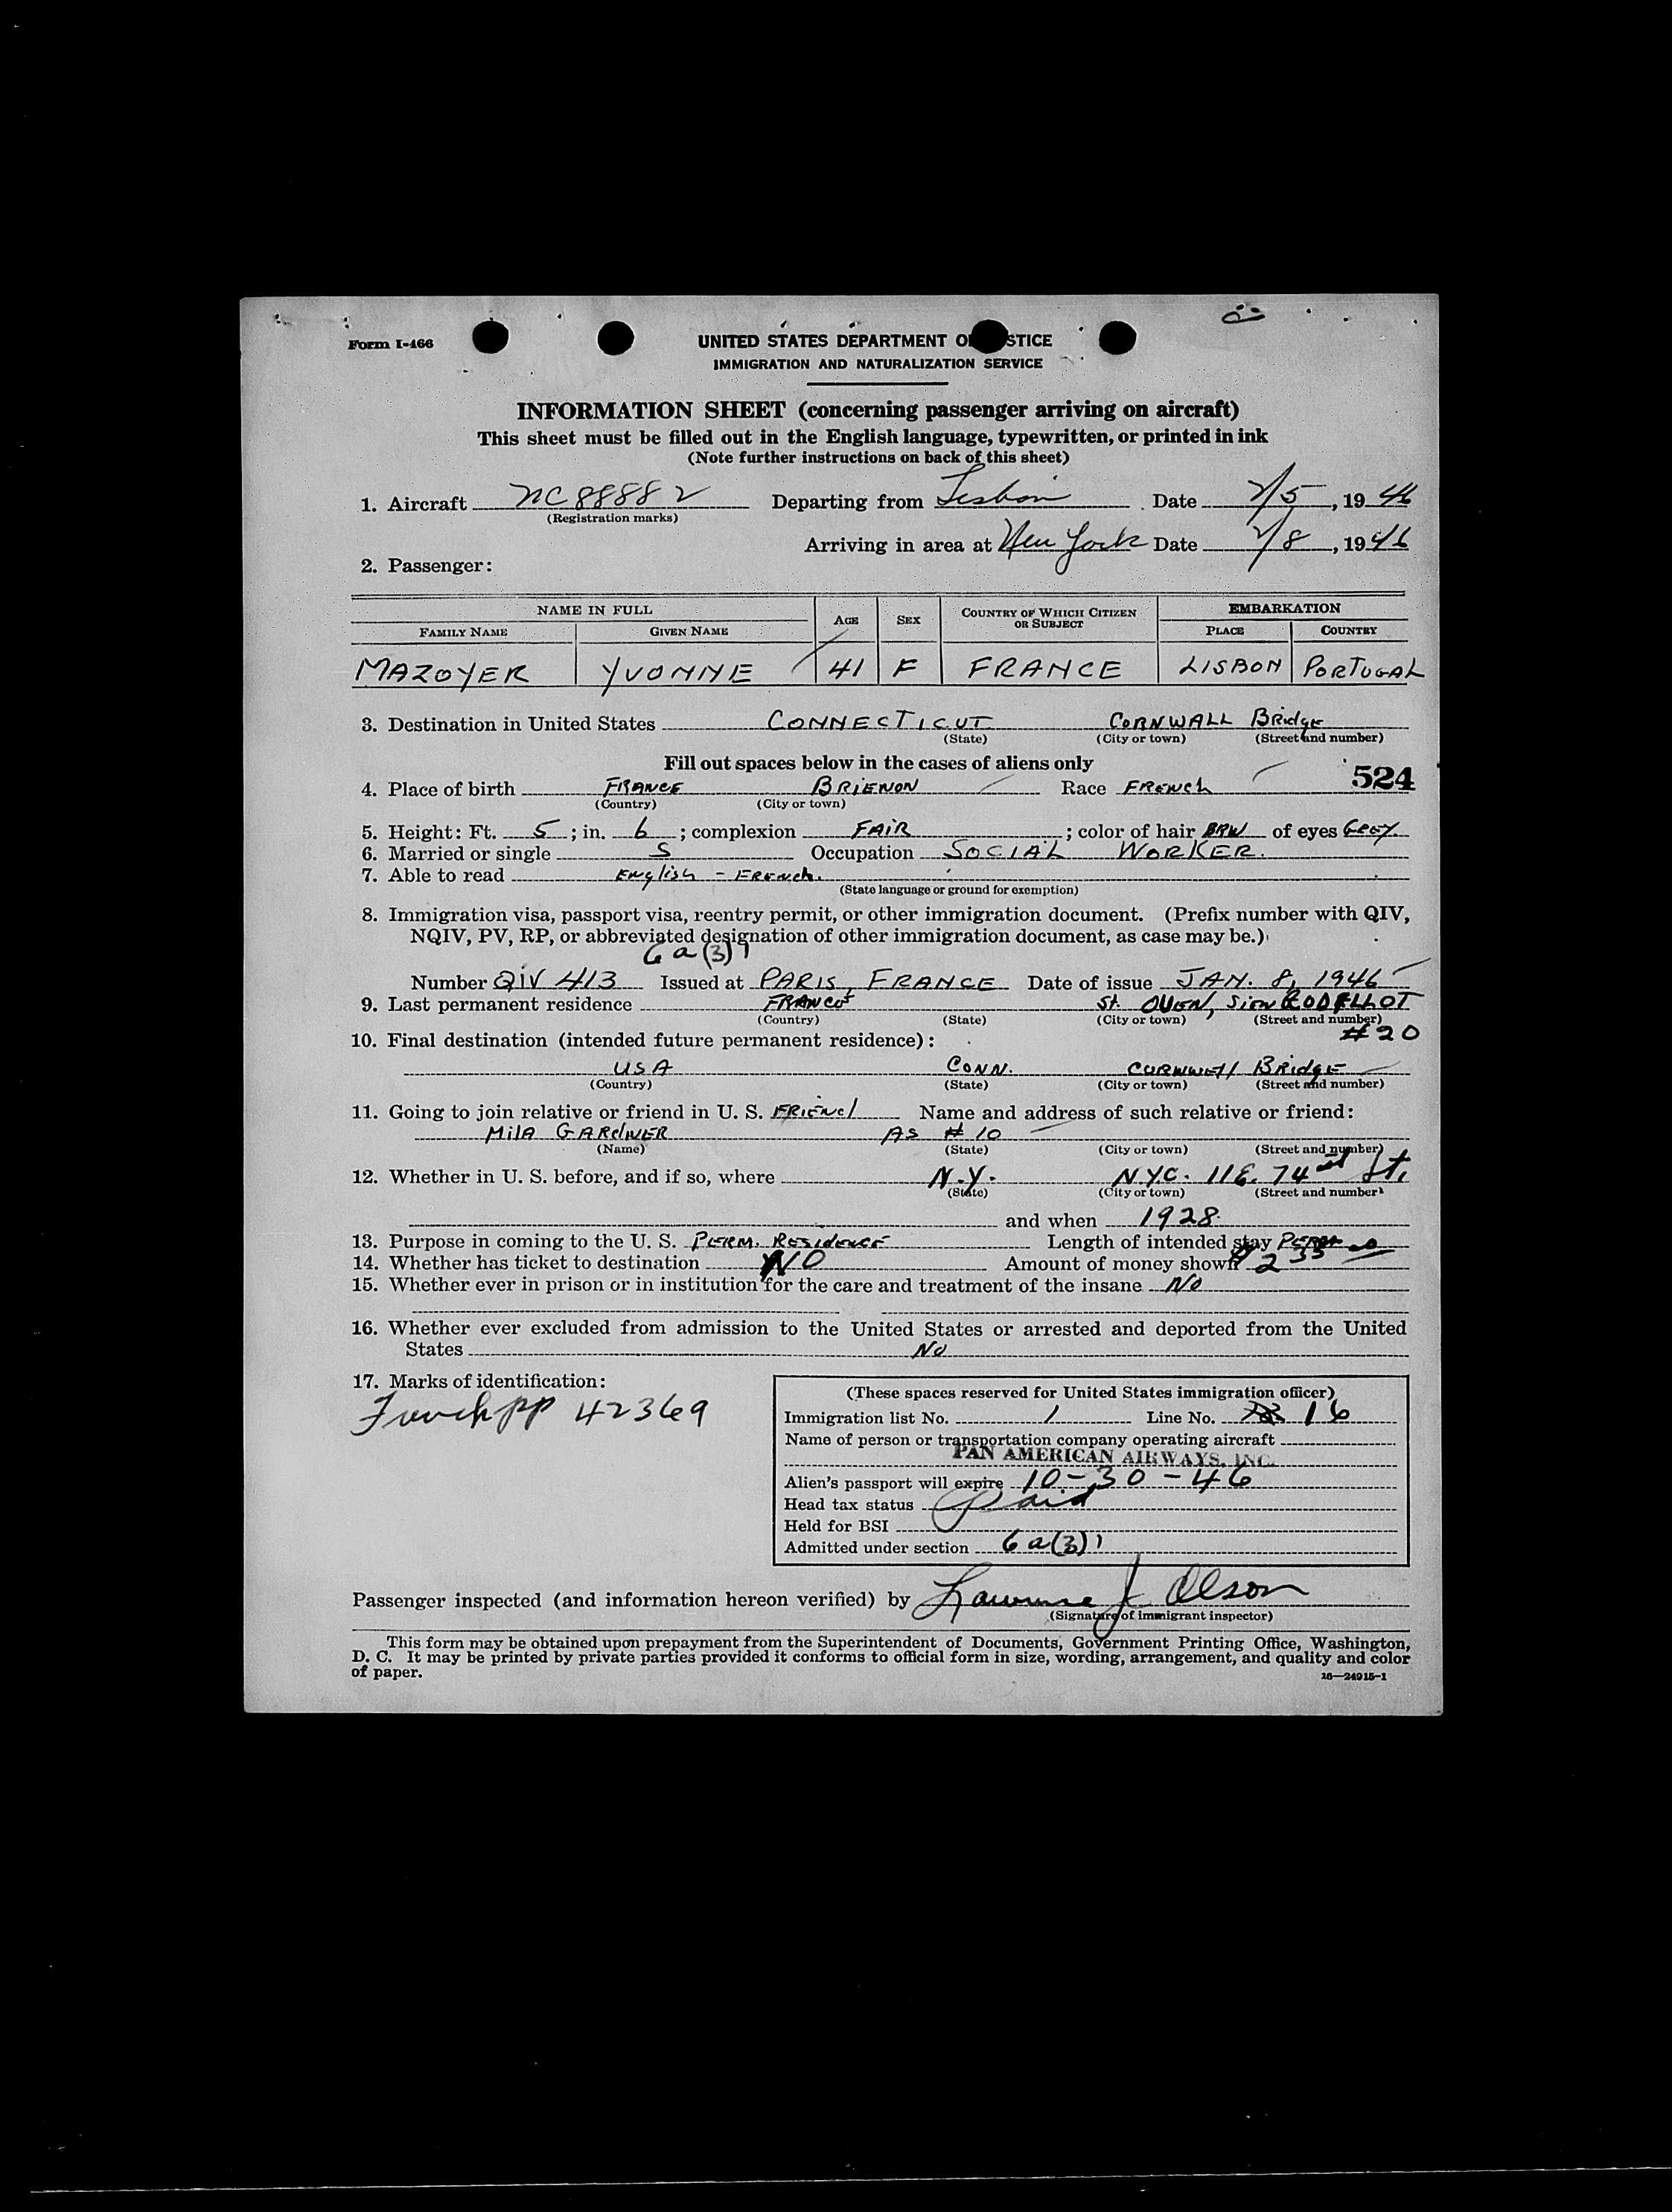 Form I-466
UNITED STATES DEPARTMENT O STICE
IMMIGRATION AND NATURALIZATION SERVICE
INFORMATION SHEET (concerning passenger arriving on aircraft)
This sheet must be filled out in the English language, typewritten, or printed in ink
(Note further instructions on back of this sheet)
1. Aircraft NC 88882 Departing from Lisbon Date 2/5, 1946
(Registration marks)
Arriving in area at New York Date 2/8, 1946
2. Passenger:
NAME IN FULL AGE SEX COUNTRY OF WHICH CITIZEN OR SUBJECT EMBARKATION
FAMILY NAME GIVEN NAME PLACE COUNTRY
MAZOYER YVONNE 41 F FRANCE LISBON PORTUGAL
3. Destination in United States CONNECTICUT CORNWALL BRidgE
(State) (City or town) (Street and number)
Fill out spaces below in the cases of aliens only
524
4. Place of birth FRANCE BRIENON Race FRENCh
(Country) (City or town)
5. Height: Ft. 5; in. 6; complexion FAIR; color of hair BRW of eyes GREY.
6. Married or single S Occupation SOCIAL WORKER.
7. Able to read ENglish - FRENch.
(State language or ground for exemption)
8. Immigration visa, passport visa, reentry permit, or other immigration document. (Prefix number with QIV,
NQIV, PV, RP, or abbreviated designation of other immigration document, as case may be.)
6 a (3) 1
Number QIV 413 Issued at PARIS, FRANCE Date of issue JAN. 8, 1946
9. Last permanent residence FRANCE St. OUEN,
(Country) (State) (City or town) (Street and number)
#20
10. Final destination (intended future permanent residence):
USA CONN. CORNWEll BRidgE
(Country) (State) (City or town) (Street and number)
11. Going to join relative or friend in U. S. FRIENd Name and address of such relative or friend:
MilA GARdiNER AS # 10
(Name) (State) (City or town) (Street and number)
12. Whether in U. S. before, and if so, where N.Y. N.Y.C. 11 E. 74 St.
(State) (City or town) (Street and number)
and when 1928.
13. Purpose in coming to the U. S. PERM. RESIdENCE Length of intended stay PERM
14. Whether has ticket to destination NO Amount of money shown $233 00
15. Whether ever in prison or in institution for the care and treatment of the insane No
16. Whether ever excluded from admission to the United States or arrested and deported from the United
States No
17. Marks of identification:
French pp 42369
(These spaces reserved for United States immigration officer)
Immigration list No. 1 Line No. 16
Name of person or transportation company operating aircraft
PAN AMERICAN AIRWAYS, INC.
Alien's passport will expire 10-30-46
Head tax status Paid
Held for BSI
Admitted under section 6 a (3) 1
Passenger inspected (and information hereon verified) by Lawrence J Olson
(Signature of immigrant inspector)
This form may be obtained upon prepayment from the Superintendent of Documents, Government Printing Office, Washington,
D. C. It may be printed by private parties provided it conforms to official form in size, wording, arrangement, and quality and color
of paper.
16—24915-1